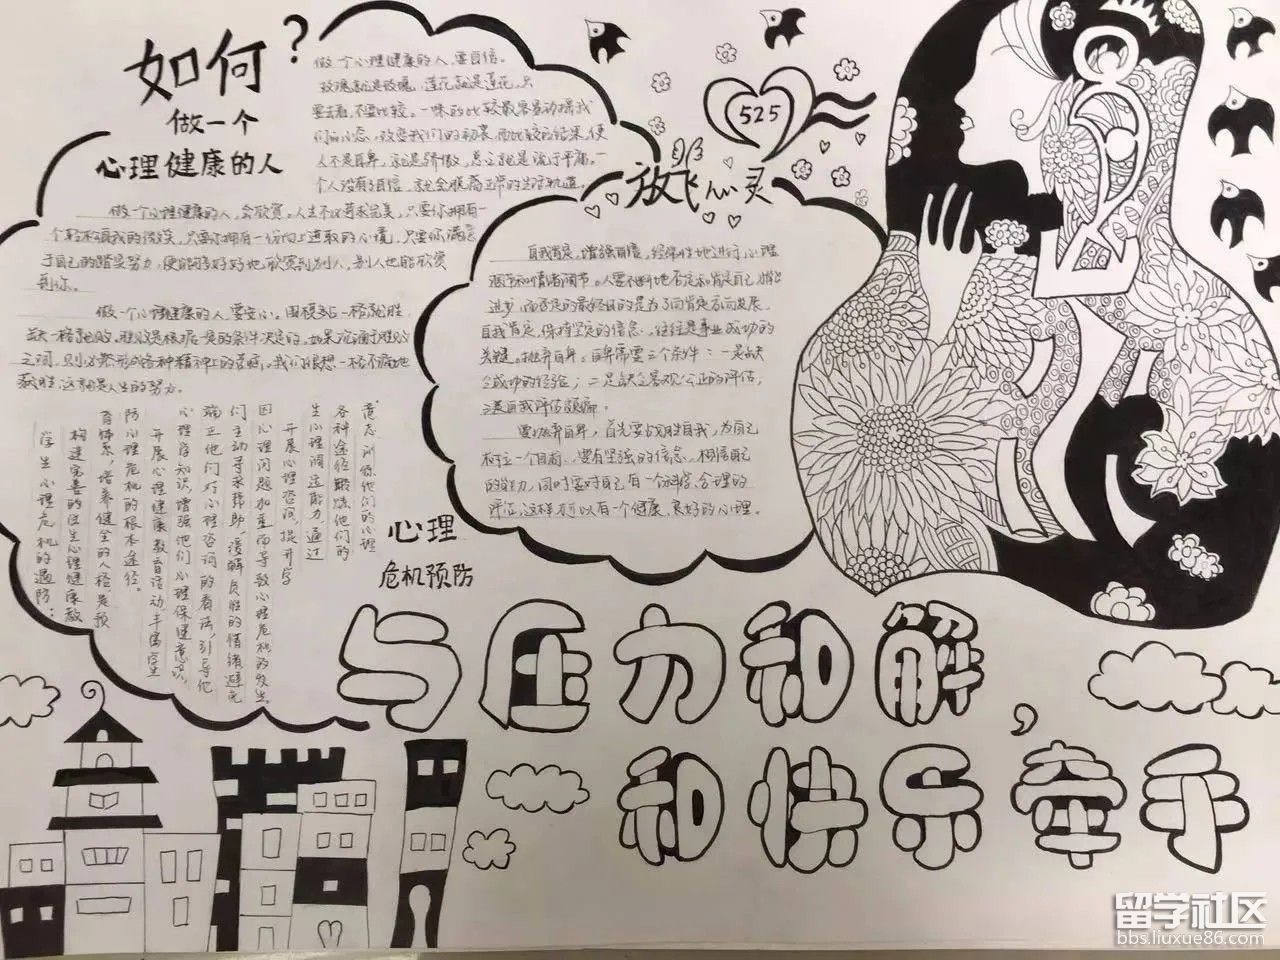 如何?
做一个
心理健康的人
做一个心理健康的人,要自信。
玫瑰就是玫瑰,莲花就是莲花,只
要去看,不要比较。一味的比较最容易动摇我
们的心态,改变我们的初衷,而比较的结果,使
人不是自卑,就是骄傲,总之就是流于平庸。一
个人没有自信,就会脱离正常的生活轨道。
做一个心理健康的人,会欣赏。人生不必苛求完美,只要你拥有一
个轻松自我的微笑,只要你拥有一份向上进取的心境,只要你满意
于自己的踏实努力,便能够好好地欣赏到别人,别人也能欣赏
到你。
做一个心理健康的人,要安心。
之间,
获胜,这就是人生的努力。
525
放飞心灵
自我肯定,增强自信,经常性地进行心理
调节和情绪调节。人要不断地否定和肯定自己,才能
进步,而否定的最终目的是为了向肯定方向发展。
自我肯定,保持坚定的信念,往往是事业成功的
关键。抛弃自卑。自卑需要三个条件:一是缺
乏成功的经验;二是缺乏客观公正的评估,
三是自我评估偏颇。
要抛弃自卑,首先要战胜自我,为自己
树立一个目标,要有坚强的信念,相信自己
的能力,同时要对自己有一个科学、合理的
评估,这样才可以有一个健康、良好的心理。
心理
危机预防
学生心理危机的预防:
构建完善的学生心理健康教
育体系,培养健全的人格,是预
防心理危机的根本途径。
开展心理健康教育活动,丰富学生
心理学知识,增强他们心理保健意识,
端正他们对心理咨询的看法,引导他
们主动寻求帮助,缓解负性的情绪,避免
因心理问题加重而导致心理危机的发生。
开展心理咨询,提升学
生心理调适能力,通过
各种途径锻炼他们的
意志,训练他们的心理
与压力和解,
和快乐牵手
留学社区
bbs.liuxue86.com